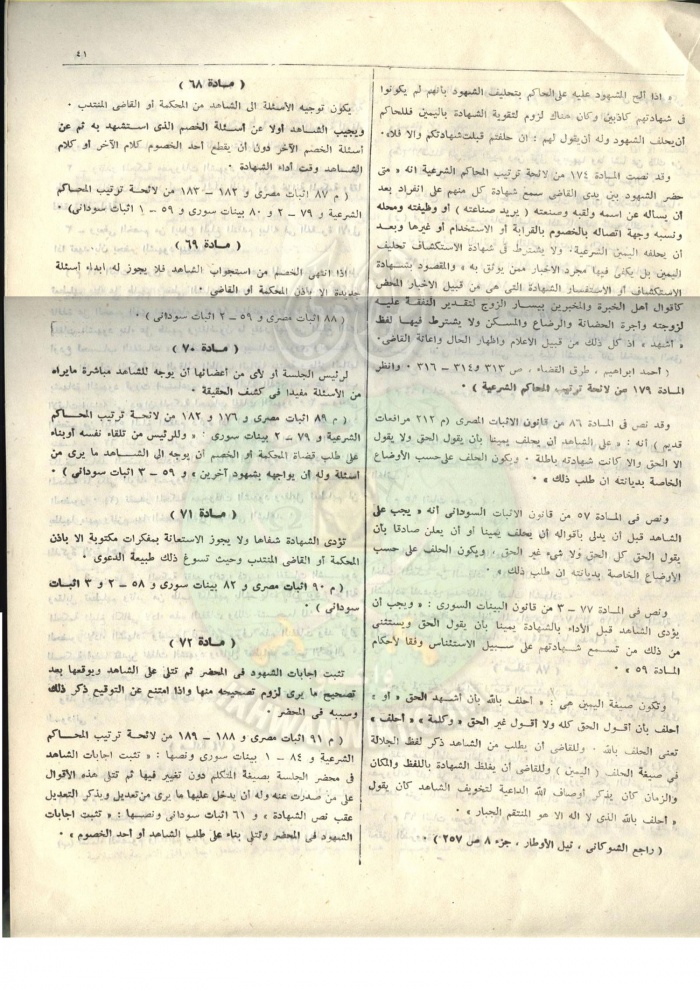 ٤١
« اذا ألح المشهود عليه على الحاكم بتحليف الشهود بأنهم لم يكونوا
فى شهادتهم كاذبين وكان هناك لزوم لتقوية الشهادة باليمين فللحاكم
أن يحلف الشهود وله أن يقول لهم : ان حلفتم قبلت شهادتكم والا فلا» .
وقد نصت المادة ١٧٤ من لائحة ترتيب المحاكم الشرعية انه « متى
حضر الشهود بين يدى القاضى سمع شهادة كل منهم على انفراد بعد
أن يسأله عن اسمه ولقبه وصنعته ( يريد صناعته ) أو وظيفته ومحله
ونسبه وجهة اتصاله بالخصوم بالقرابة أو الاستخدام أو غيرها وبعد
أن يحلفه اليمين الشرعية . ولا يشترط فى شهادة الاستكشاف تحليف
اليمين بل يكفى فيها مجرد الاخبار ممن يوثق به » والمقصود بشهادة
الاستكشاف أو الاستفسار الشهادة التى هى من قبيل الاخبار المحض
كأقوال أهل الخبرة والمخبرين بيسار الزوج لتقدير النفقة عليه
لزوجته وأجرة الحضانة والرضاع والمسكن ولا يشترط فيها لفظ
« أشهد » اذ كل ذلك من قبيل الاعلام واظهار الحال واعانة القاضى .
( أحمد ابراهيم ، طرق القضاء ، ص ٣١٣ و٣١٤ – ٣١٦ . وانظر
المادة ١٧٩ من لائحة ترتيب المحاكم الشرعية ) .
وقد نص فى المادة ٨٦ من قانون الاثبات المصرى (م ٢١٢ مرافعات
قديم ) أنه : « على الشاهد أن يحلف يمينا بأن يقول الحق ولا يقول
الا الحق والا كانت شهادته باطلة . ويكون الحلف على حسب الأوضاع
الخاصة بديانته ان طلب ذلك » .
ونص فى المادة ٥٧ من قانون الاثبات السودانى أنه « يجب على
الشاهد قبل أن يدلى بأقواله أن يحلف يمينا أو أن يعلن صادقا بأن
يقول الحق كل الحق ولا شىء غير الحق ، ويكون الحلف على حسب
الأوضاع الخاصة بديانته ان طلب ذلك » .
ونص فى المادة ٧٧ – ٣ من قانون البينات السورى : « ويجب أن
يؤدى الشاهد قبل الأداء بالشهادة يمينا بأن يقول الحق ويستثنى
من ذلك من تسمع شهادتهم على سبيل الاستئناس وفقا لأحكام
المادة ٥٩ » .
وتكون صيغة اليمين هى : « أحلف بالله بأن أشهد الحق » أو «
أحلف بأن أقول الحق كله ولا أقول غير الحق » وكلمة « أحلف »
تعنى الحلف بالله . وللقاضى أن يطلب من الشاهد ذكر لفظ الجلالة
فى صيغة الحلف ( اليمين ) وللقاضى أن يغلظ الشهادة باللفظ والمكان
والزمان كأن يذكر أوصاف الله الداعية لتخويف الشاهد كأن يقول
« أحلف بالله الذى لا اله الا هو المنتقم الجبار » .
( راجع الشوكانى ، نيل الأوطار ، جزء ٨ ص ٢٥٧ ) .
( مادة ٦٨ )
يكون توجيه الأسئلة الى الشاهد من المحكمة أو القاضى المنتدب .
ويجيب الشاهد أولا عن أسئلة الخصم الذى استشهد به ثم عن
أسئلة الخصم الآخر دون أن يقطع أحد الخصوم كلام الآخر أو كلام
الشاهد وقت أداء الشهادة .
( م ٨٧ اثبات مصرى و ١٨٢ – ١٨٣ من لائحة ترتيب المحاكم
الشرعية و ٧٩ – ٢ و ٨٠ بينات سورى و ٥٩ – ١ اثبات سودانى) .
( مادة ٦٩ )
اذا انتهى الخصم من استجواب الشاهد فلا يجوز له ابداء أسئلة
جديدة الا باذن المحكمة أو القاضى .
( ٨٨ اثبات مصرى و ٥٩ – ٢ اثبات سودانى ) .
( مادة ٧٠ )
لرئيس الجلسة أو لأى من أعضائها أن يوجه للشاهد مباشرة مايراه
من الأسئلة مفيدا فى كشف الحقيقة .
( م ٨٩ اثبات مصرى و ١٧٦ و ١٨٢ من لائحة ترتيب المحاكم
الشرعية و ٧٩ – ٢ بينات سورى : « وللرئيس من تلقاء نفسه أوبناء
على طلب قضاة المحكمة أو الخصم أن يوجه الى الشاهد ما يرى من
أسئلة وله أن يواجهه بشهود آخرين » و ٥٩ – ٣ اثبات سودانى ) .
( مادة ٧١ )
تؤدى الشهادة شفاها ولا يجوز الاستعانة بمفكرات مكتوبة الا باذن
المحكمة أو القاضى المنتدب وحيث تسوغ ذلك طبيعة الدعوى .
( م ٩٠ اثبات مصرى و ٨٢ بينات سورى و ٥٨ – ٢ و ٣ اثبات
سودانى ) .
( مادة ٧٢ )
تثبت اجابات الشهود فى المحضر ثم تتلى على الشاهد ويوقعها بعد
تصحيح ما يرى لزوم تصحيحه منها واذا امتنع عن التوقيع ذكر ذلك
وسببه فى المحضر .
( م ٩١ اثبات مصرى و ١٨٨ – ١٨٩ من لائحة ترتيب المحاكم
الشرعية و ٨٤ – ١ بينات سورى ونصها : « تثبت اجابات الشاهد
فى محضر الجلسة بصيغة المتكلم دون تغيير فيها ثم تتلى هذه الاقوال
على من صدرت عنه وله أن يدخل عليها ما يرى من تعديل ويذكر التعديل
عقب نص الشهادة » و ٦١ اثبات سودانى ونصها : « تثبت اجابات
الشهود فى المحضر وتتلى بناء على طلب الشاهد أو أحد الخصوم » .